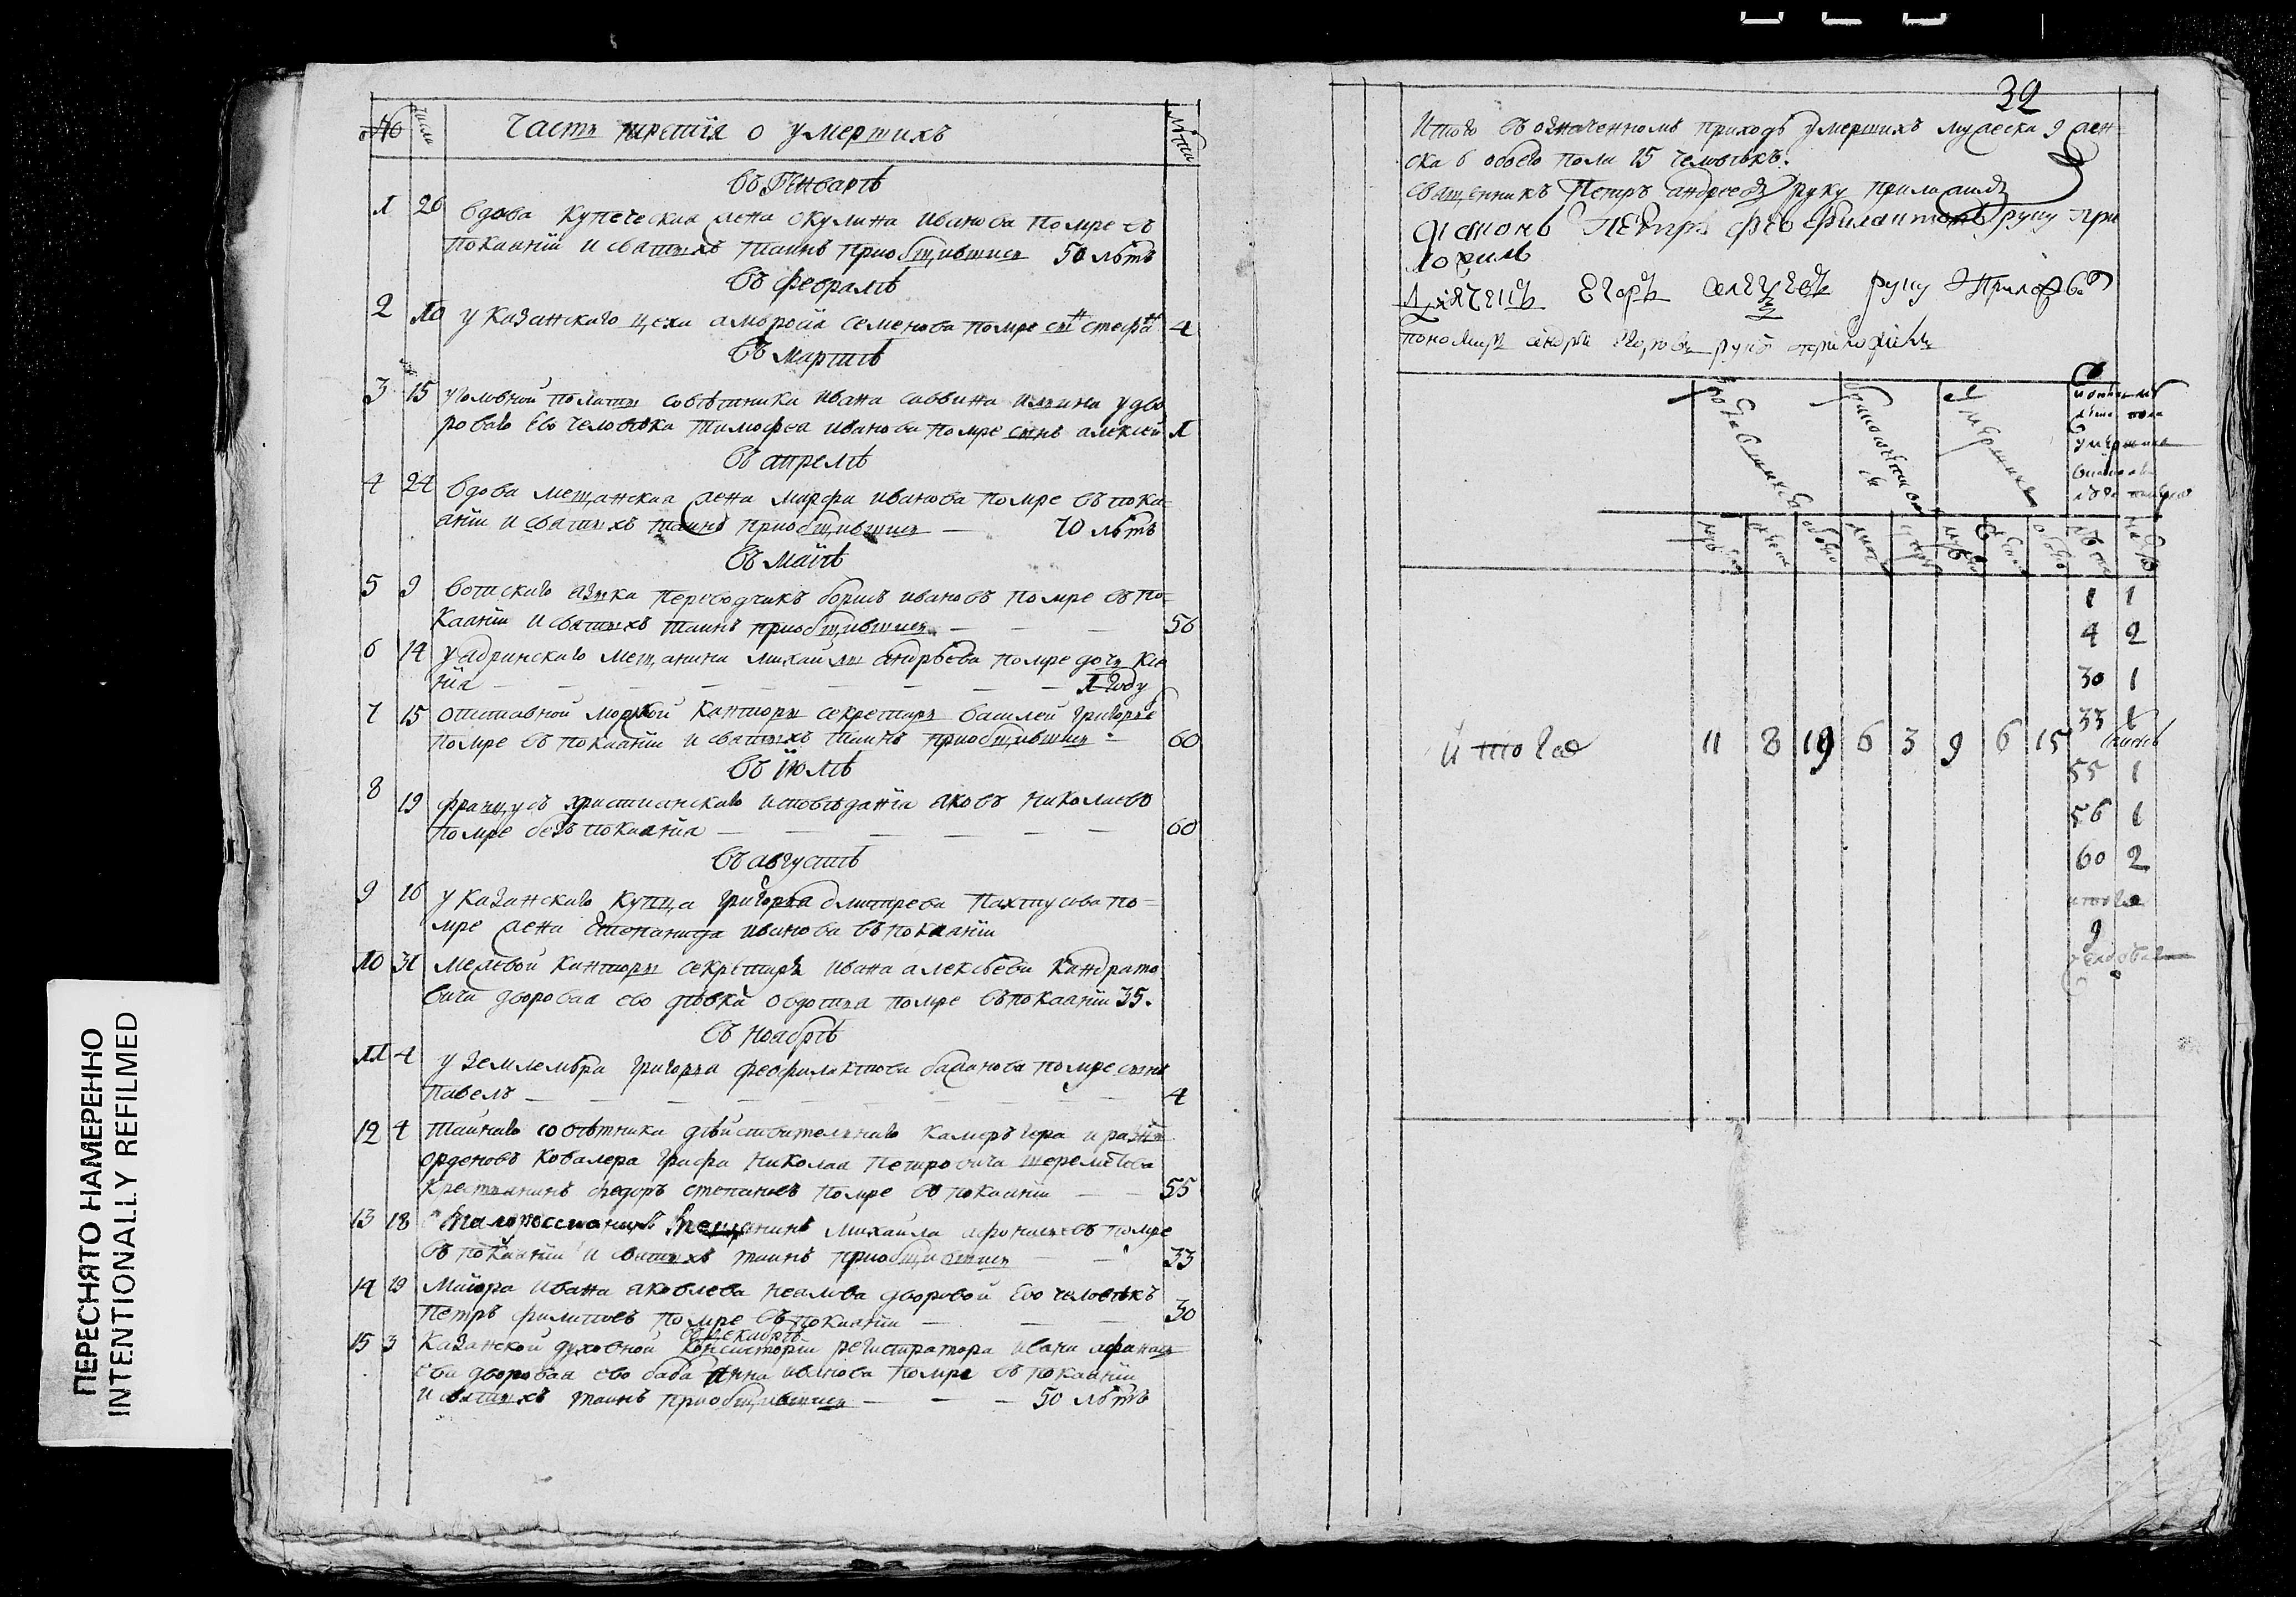 № числа Часть третія о умершихъ лѣта
въ Генварѣ
1 26 вдова купеческая жена окулина иванова помре въ
покаяніи и святыхъ таинъ приобщившись 50 лѣтъ
въ февралѣ
2 10 у казанскаго цеха амвросія семенова помре снъ стефанъ 4
въ мартѣ
3 15 уголовной полаты совѣтника ивана саввина у дво
роваго Ево человѣка тимофея иванова помре снъ алексей 1
въ апрелѣ
4 24 вдова мещанская жена марфа иванова помре въ пока
яніи и святыхъ таинъ приобщившись — 70 лѣтъ
въ маіѣ
5 9 вотскаго языка переводчикъ борисъ ивановъ помре въ по=
каяніи и святыхъ таинъ приобщившись — — 56
6 14 у ядринскаго мещанина михайлы андрѣева помре дочь ксе
нія — — — — — — — 1 году
7 15 отставной морской канторы секретарь василей григорьев
помре въ покаяніи и святыхъ таинъ приобщившись — 60
въ іюлѣ
8 19 французъ христианскаго исповѣданія яковъ николаевъ
помре безъ покаянія — — — — — 60
въ августѣ
9 16 у казанскаго купца григорья дмитрева пахтусова по=
мре жена степанида иванова въ покаяніи
10 31 межевой канторы секретаря ивана алексѣева кандрато
вича дворовая ево дѣвка овдотья помре въ покаяніи 35.
въ ноябрѣ
11 4 у землемѣра григорья феофилактова баженова помре снъ
павелъ — — — — — — — 4
12 4 тайнаго совѣтника дѣйствительнаго камеръ гера и разн
орденовъ ковалера графа николая петровича шереметева
крестьянинъ федоръ степановъ помре въ покаяніи — — 55
13 18 мещанинъ михаила афонасьевъ помре
въ покаяніи и святыхъ таинъ приобщившись — — 33
14 19 маіора ивана яковлева дворовой Ево человѣкъ
петръ филиповъ помре въ покаяніи — — — 30
въ декабрѣ
15 3 казанской духовной консисторіи регистратора ивана афанась
ева дворовая ево баба анна иванова помре въ покаяніи
и святыхъ таинъ приобщившись — — — 50 лѣтъ
32
Итого въ означенномъ приходѣ умершихъ мужеска 9 жен
ска 6 обоего пола 15 человѣкъ.
священникъ Петръ андреевъ руку приложилъ
диаконъ Петръ феофилактовъ руку при
ложилъ
дьячекъ Егоръ руку приложилъ
пономарь андрей руку приложилъ
родившихся умершихъ
итого 11 8 19 6 3 9 6 15
1 1
4 2
30 1
33 1
55 1
56 1
60 2
итого
9
ПЕРЕСНЯТО НАМЕРЕННО
INTENTIONALLY REFILMED